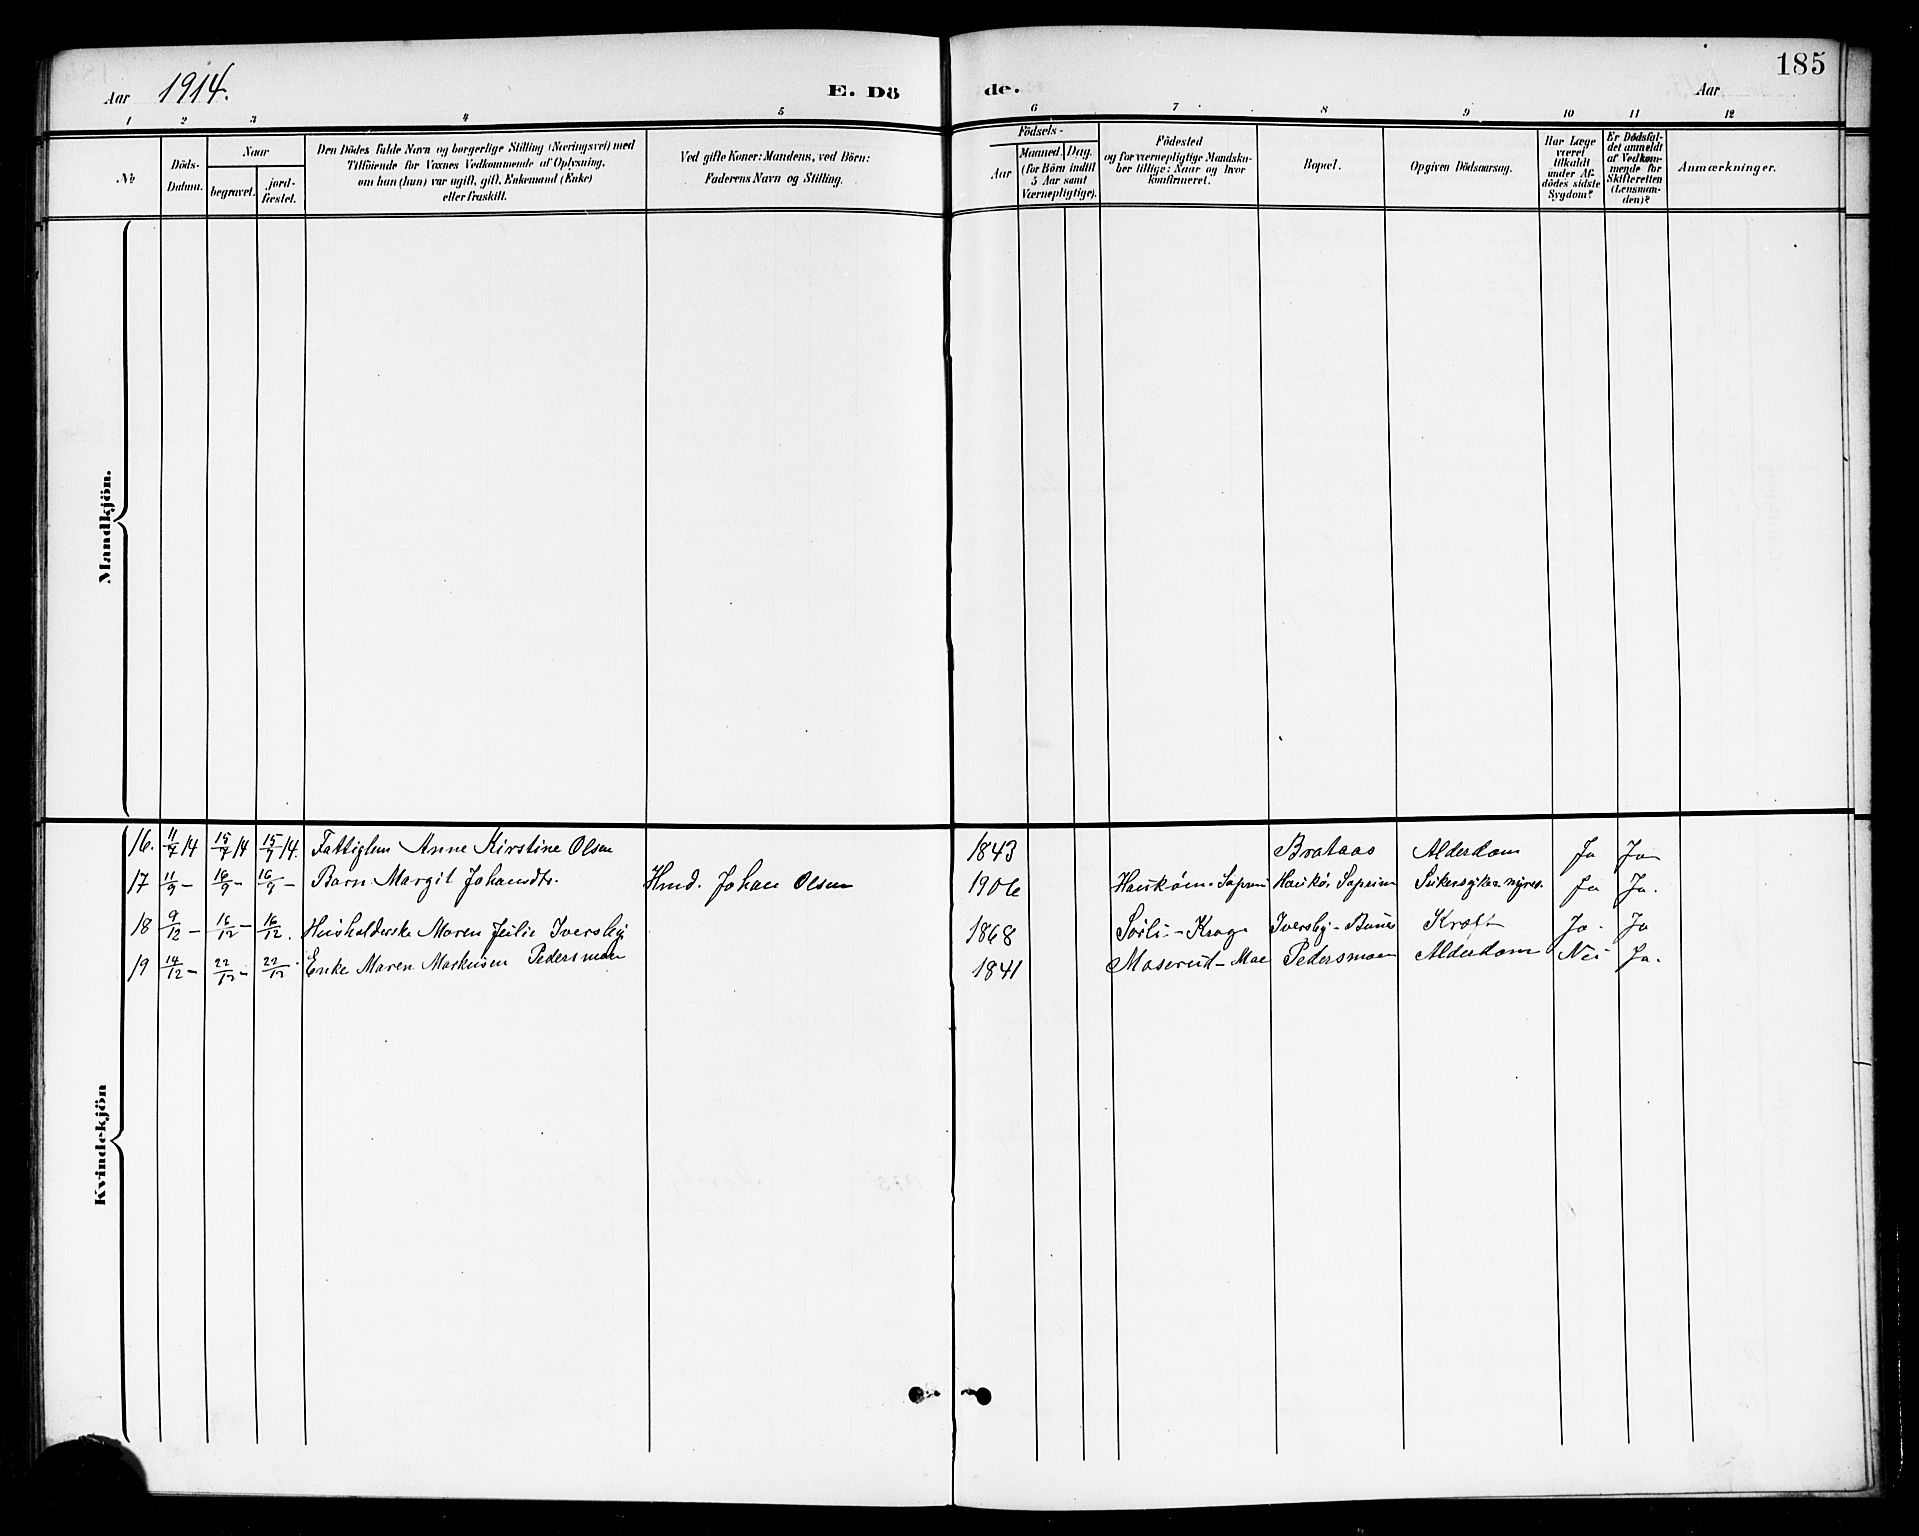 185
Aar 1914. E. Dö de. Aar
1 2 3 4 5 6 7 8 9 10 11 12
No
Döds-Datum.
Naar
begravet.
jord-fæstet.
Den Dödes fulde Navn og borgerlige Stilling (Næringsvei) med
Tilföiende for Voxnes Vedkommende af Oplysning,
om han (hun) var ugift, gift, Enkemand (Enke)
eller fraskilt.
Ved gifte Koner: Mandens, ved Börn:
Faderens Navn og Stilling.
Födsels-
Aar
Maaned. Dag.
(for Börn indtil
5 Aar samt
Værnepligtige).
Födested
og for værnepligtige Mandska-
ber tillige: Naar og hvor
konfirmeret.
Bopæl.
Opgiven Dödsaarsag.
Har Læge
været
tilkaldt
under Af-
dödes sidste
Sygdom?
Er Dödsfal-
det anmeldt
af Vedkom-
mende for
Skifteretten
(Lensman-
den)?
Anmærkninger.
Mandkjön.
Kvindekjön
16. 11/7 14 15/7 14 15/7 14. Fattiglem Anne Kirstine Olsen 1843 Brataas Alderdom Ja Ja
17 11/9 - 16/9 - 16/9 - Barn Margit Johansdtr. Hmd. Johan Olsen 1906 Ja Ja.
18 9/12 - 16/12 - 16/12. Husholderske Maren Julie Iversby 1868 Sørli - Krog Iversby - Kræft Ja. Ja
19 14/12 - 22/12 - 22/12. Enke Maren Markusen Pedersmoen 1841 Moserud - Moe Pedersmoen Alderdom Nei Ja.